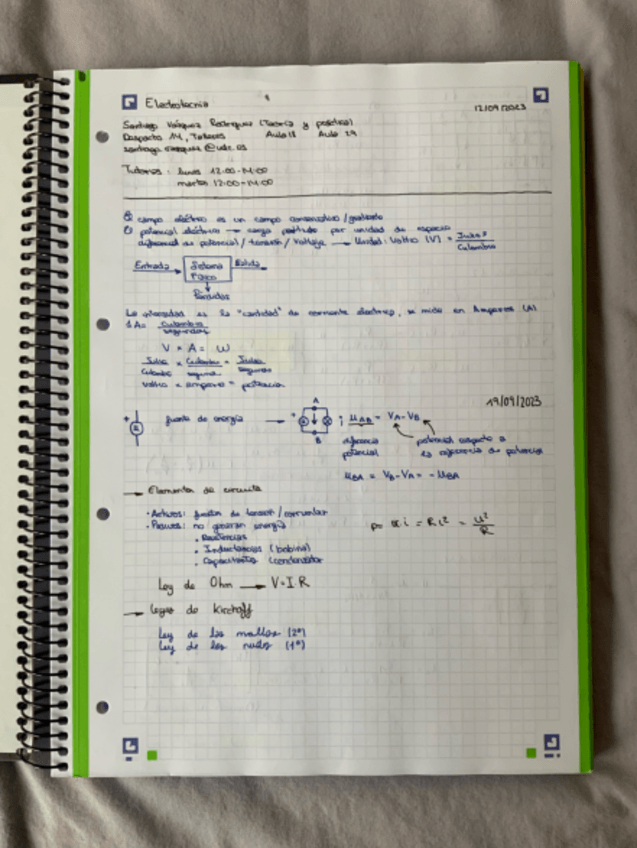 Electrotecnia
12/09/2023
Santiago Vázquez Rodríguez (Teoría y práctica)
Despacho 14, Talleres Aula 18 Aula 29
santiago.vazquez@udc.es
Tutorías: lunes 12:00-14:00
martes 12:00-14:00
campo eléctrico es un campo conservativo/gradiente
potencial eléctrico → carga por unidad de espacio
diferencia de potencial/tensión/voltaje → Unidad: Voltio (V) = Julio / Culombio
Entrada Sistema Físico Salida
Pérdidas
La intensidad es la "cantidad" de corriente eléctrica, se mide en Amperios (A)
1A = Culombio / segundos
V × A = W
Julio / Culombio × Culombio / segundo = Julio / segundo
voltio × amperio = potencia
19/09/2023
+ fuente de energía → + A B ; u_AB = V_A - V_B
diferencia potencial
potencial respecto a la diferencia de potencial
u_BA = V_B - V_A = -u_BA
→ Elementos de circuito
· Activos: fuentes de tensión/corriente
· Pasivos: no generan energía
· Resistencias
· Inductancias (bobina)
· Capacitancias (condensador
i = Ri² = u²/R
Ley de Ohm → V=I·R
→ Leyes de Kirchoff
Ley de las mallas (2ª)
Ley de los nudos (1ª)